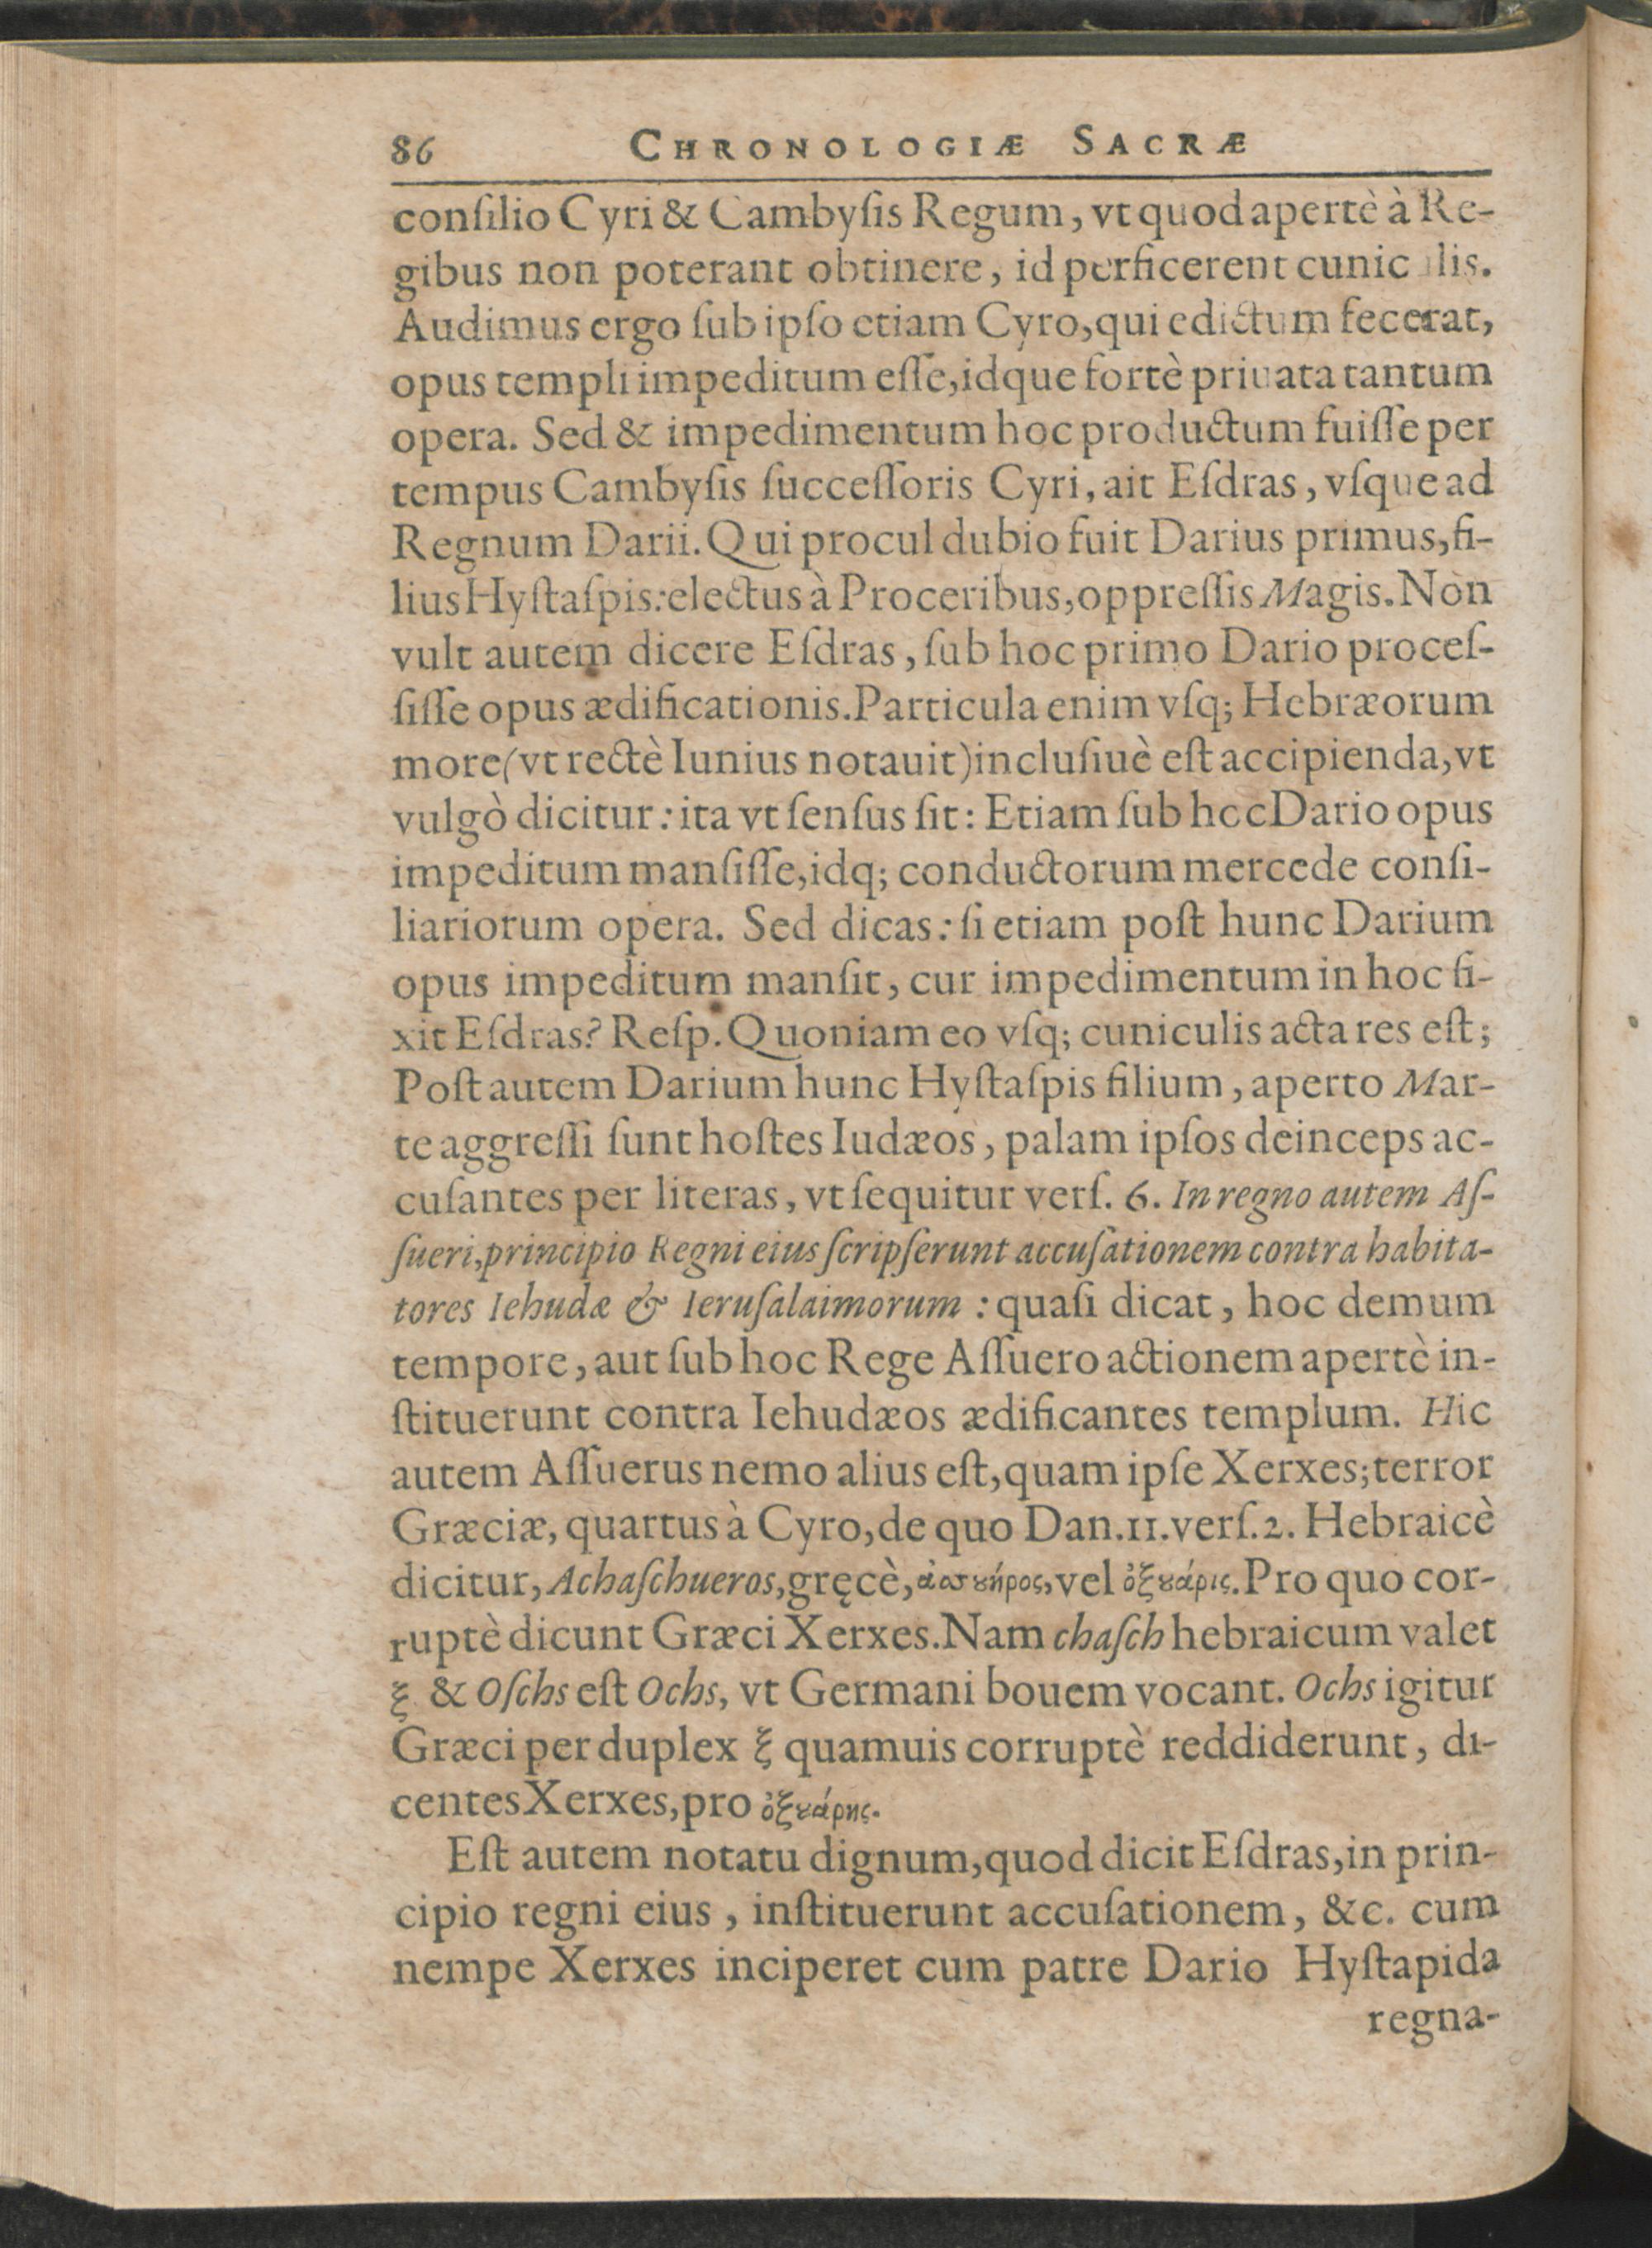 86 CHRONOLOGIÆ SACRÆ
conſilio Cyri & Cambyſis Regum, vt quod apertè à Re-
gibus non poterant obtinere, id perficerent cunic lis.
Audimus ergo ſub ipſo etiam Cyro, qui edictum fecerat,
opus templi impeditum eſſe, idque fortè priuata tantum
opera. Sed & impedimentum hoc productum fuiſſe per
tempus Cambyſis ſucceſſoris Cyri, ait Eſdras, vſque ad
Regnum Darii. Qui procul dubio fuit Darius primus, fi-
lius Hyſtaſpis: electus à Proceribus, oppreſſis Magis. Non
vult autem dicere Eſdras, ſub hoc primo Dario proceſ-
ſiſſe opus ædificationis. Particula enim vſq; Hebræorum
more (vt rectè Iunius notauit) incluſiuè eſt accipienda, vt
vulgò dicitur: ita vt ſenſus ſit: Etiam ſub hoc Dario opus
impeditum manſiſſe, idq; conductorum mercede conſi-
liariorum opera. Sed dicas: ſi etiam poſt hunc Darium
opus impeditum manſit, cur impedimentum in hoc fi-
xit Eſdras? Reſp. Quoniam eo vſq; cuniculis acta res eſt;
Poſt autem Darium hunc Hyſtaſpis filium, aperto Mar-
te aggreſſi ſunt hoſtes Iudæos, palam ipſos deinceps ac-
cuſantes per literas, vt ſequitur verſ. 6. In regno autem Aſ-
ſueri, principio Regni eius ſcripſerunt accuſationem contra habita-
tores Iehudæ & Ieruſalaimorum: quaſi dicat, hoc demum
tempore, aut ſub hoc Rege Aſſuero actionem apertè in-
ſtituerunt contra Iehudæos ædificantes templum. Hic
autem Aſſuerus nemo alius eſt, quam ipſe Xerxes; terror
Græciæ, quartus à Cyro, de quo Dan. 11. verſ. 2. Hebraicè
dicitur, Achaſchueros, gręcè, ἀσουήρος, vel ὀξουάρις. Pro quo cor-
ruptè dicunt Græci Xerxes. Nam chaſch hebraicum valet
ξ & Oſchs eſt Ochs, vt Germani bouem vocant. Ochs igitur
Græci per duplex ξ quamuis corruptè reddiderunt, di-
centes Xerxes, pro ὀξουάρης.
Eſt autem notatu dignum, quod dicit Eſdras, in prin-
cipio regni eius, inſtituerunt accuſationem, &c. cum
nempe Xerxes inciperet cum patre Dario Hyſtapida
regna-